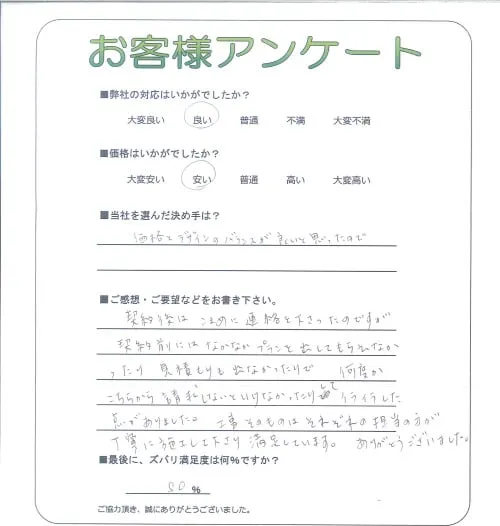 お客様アンケート
■弊社の対応はいかがでしたか？
大変良い 良い 普通 不満 大変不満
■価格はいかがでしたか？
大変安い 安い 普通 高い 大変高い
■当社を選んだ決め手は？
価格とデザインのバランスが良いと思ったので
■ご感想・ご要望などをお書き下さい。
契約後は こまめに 連絡を下さったのですが
契約前には なかなか プランを出してもらえなか
ったり 見積もりも 出なかったりで 何度か
こちらから 請求しないといけなかったりして イライラした
点がありました。 工事そのものは それぞれの担当の方が
丁寧に施工して下さり 満足しています。 ありがとうございました。
■最後に、ズバリ満足度は何％ですか？
80 %
ご協力頂き、誠にありがとうございました。